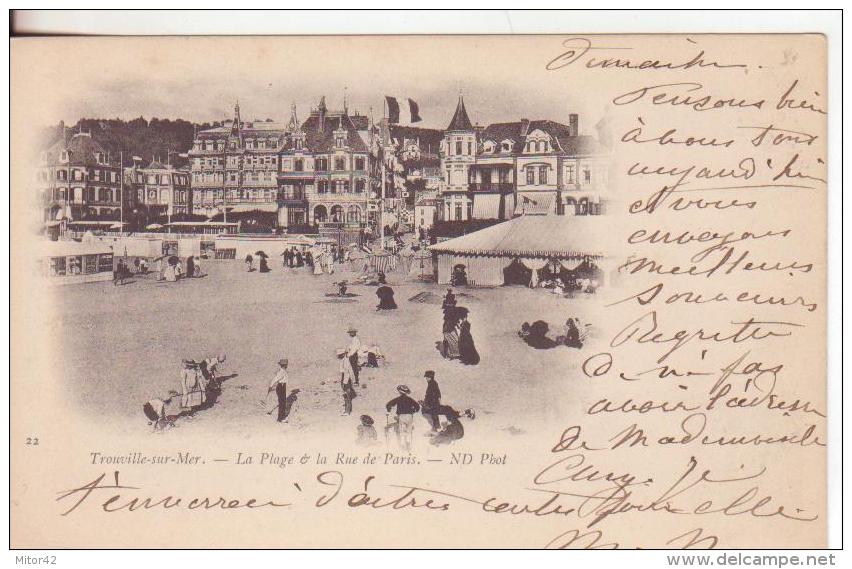 Dimanche.
Pensons bien
à vous tout
aujourd'hui
et vous
envoyons
meilleurs
souvenirs
Regrette
de n'pas
avoir l'adresse
de Mademoiselle
22
Trouville-sur-Mer. — La Plage & la Rue de Paris. — ND Phot
Je
t'enverrai d'autres cartes pour elle
Mitor42
www.delcampe.net